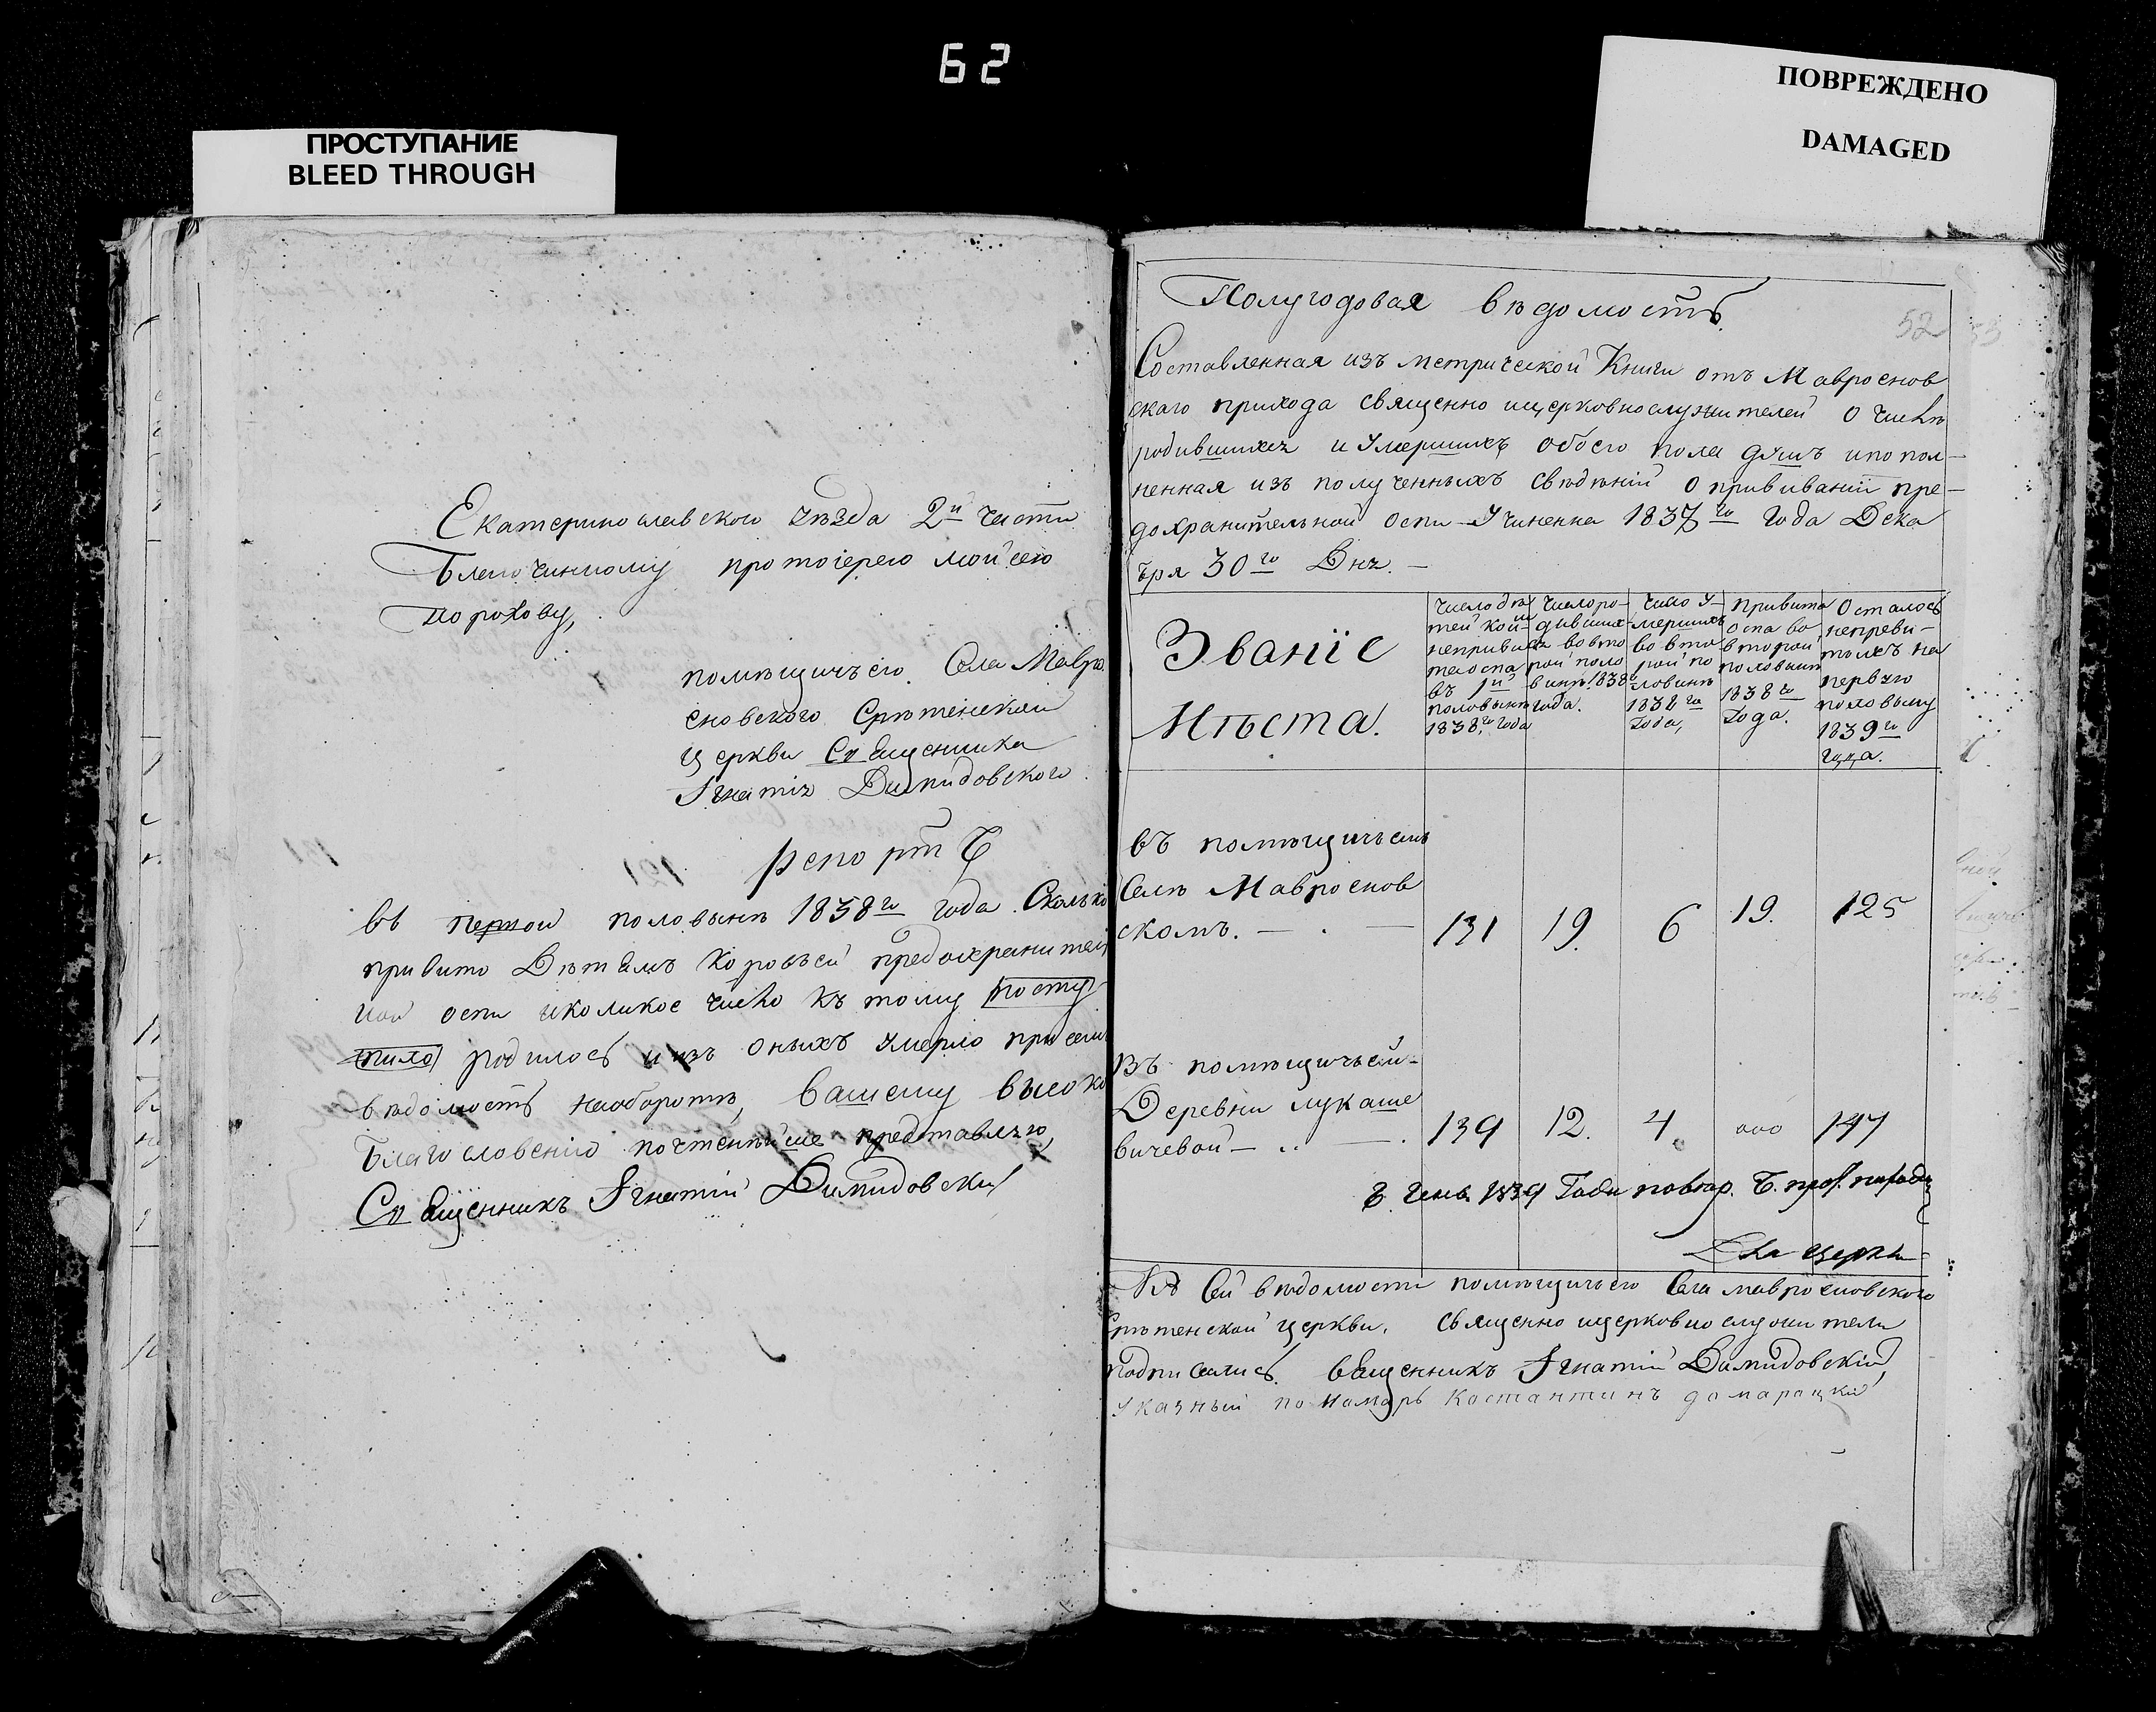 62
ПРОСТУПАНИЕ
BLEED THROUGH
ПОВРЕЖДЕНО
DAMAGED
Екатеринославского уѣзда 2й части
Благочинному протоіерею моисею
порохову,
помѣщичьего Села Мавро
еновского Срѣтенской
церкви Священника
Игнатія Димидовского
репортъ
въ первой половынѣ 1838го года Сколько
привито Дѣтямъ коровьей предохранитель
ной оспи иколикое число къ тому посту
пило родилось и изъ оныхъ умерло при семъ
вѣдомость наоборотѣ, вашему высоко
благословенію почтеннѣйше представляю,
Священникъ Игнатій Димидовскій
Полугодовая вѣдомость
52
Составленная изъ метрической Книги отъ Мавроенов
скаго прихода священно ицерковнослужителей о числѣ
родившихся и умершихъ обоего пола душъ ипопол-
ненная изъ полученныхъ свѣдѣній о прививаніи пре-
дохранительной оспи учиненна 1837го года Дека
бря 30го Дня.
Званіе
Мѣста.
число дѣ
тей коимъ
непривы
та оспа
въ 1й
половынѣ
1838го года
число ро-
дивших
ся во вто
рой поло
винѣ 1838
года.
число у-
мершихъ
во вто
рой по
ловинѣ
1838го
года,
привита
оспа во
второй
половынѣ
1838го
года.
Осталось
непреви-
тыхъ на
первую
половыну
1839го
года.
въ помѣщичьемъ
Селѣ Мавроенов
скомъ. 131 19. 6 19. 125
Въ помѣщичьей
Деревни лукаше
вичевой 139 12. 4. ооо 147
Къ Сей вѣдомости помѣщичьего Села мавроеновского
Срѣтенской церкви. священно ицерковнослужители
подписались. священникъ Игнатій Димидовскій
указный пономарь Костантинъ домарацкій